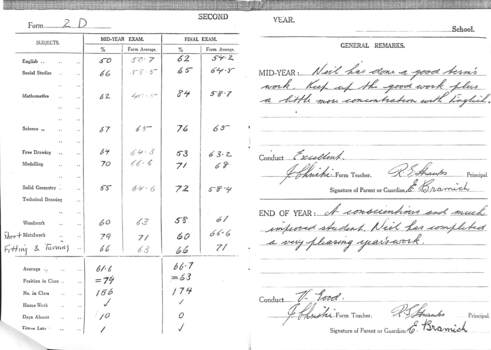 SECOND
YEAR.
Form 2 D
School.
SUBJECTS. MID-YEAR EXAM. FINAL EXAM.
% Form Average. % Form Average.
English 50 62 54.2
Social Studies 66 65 64.5
Mathematics 62 84 58.7
Science 67 65 76 65
Free Drawing 64 64.3 53 63.2
Modelling 70 66.6 71 68
Solid Geometry 55 64.6 72 58.4
Technical Drawing
Woodwork 60 63 58 61
Sheet Metalwork 74 71 60 66.6
Fitting & Turning 66 63 66 71
Average 61.6 66.7
Position in Class =74 =63
No. in Class 186 174
Home Work ✓ ✓
Days Absent 10 0
Times Late 1 ✓
GENERAL REMARKS.
MID-YEAR: Neil has done a good term's
work. Keep up the good work plus
a little more concentration with English.
Conduct Excellent.
Form Teacher. Principal.
Signature of Parent or Guardian E. Bramich
END OF YEAR: A conscientious and much
improved student. Neil has completed
a very pleasing year's work.
Conduct V. Good.
Form Teacher. Principal
Signature of Parent or Guardian E. Bramich